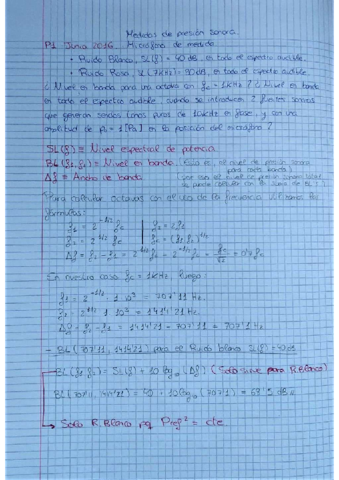 Medidas de presión sonora.
P1 Junio 2016. Micrófono de medida
• Ruido Blanco, SL(f) = 40 dB, en todo el espectro audible.
• Ruido Rosa, SL(1KHz) = 30 dB, en todo el espectro audible
¿Nivel en banda para una octava con fc = 1KHz? ¿Nivel en banda
en todo el espectro audible, cuando se introducen 2 fuentes sonoras
que generan sendos tonos puros de en fase, y con una
amplitud de P = 1[Pa] en la posición del micrófono?
SL(f) ≡ Nivel espectral de potencia.
BL(f1, f2) ≡ Nivel en banda. (el nivel de presión sonora para cada banda)
Δf ≡ Ancho de banda
Para calcular octavas con el uso de la frecuencia
fórmulas:
f1 = 2^-1/2 fc | f2 = 2f1
f2 = 2^1/2 fc | fc = (f1 f2)^1/2
Δf = f2 - f1 = 2^1/2 fc - 2^-1/2 fc = fc/√2 = 0'7 fc
En nuestro caso fc = 1KHz, luego:
f1 = 2^-1/2 · 1·10^3 = 707'11 Hz.
f2 = 2^1/2 · 1·10^3 = 1414'21 Hz
Δf = f2 - f1 = 1414'21 - 707'11 = 707'1 Hz
- BL(707'11, 1414'21) para el Ruido blanco SL(f) = 40 dB
BL(f1, f2) = SL(f) + 10 log10 (Δf) (Solo sirve para R. Blanco)
BL(707'11, 1414'21) = 40 + 10 log10 (707'1) = 68'5 dB
Solo R. Blanco pq Pref² = cte